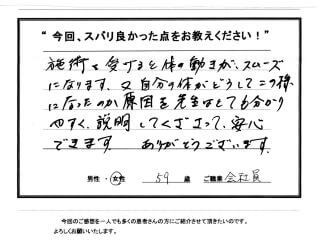 “今回、スバリ良かった点をお教えください！”
施術を受けると体の動きが、スムーズ
になります、又自分の体がどうしてこの様
になったのか原因を先生はとても分かり
やすく、説明してくださって、安心
できます　ありがとうございます。
男性・女性　59歳　ご職業 会社員
今回のご感想を一人でも多くの患者さんの方にご紹介させて頂きたいのです。
よろしくお願いいたします。